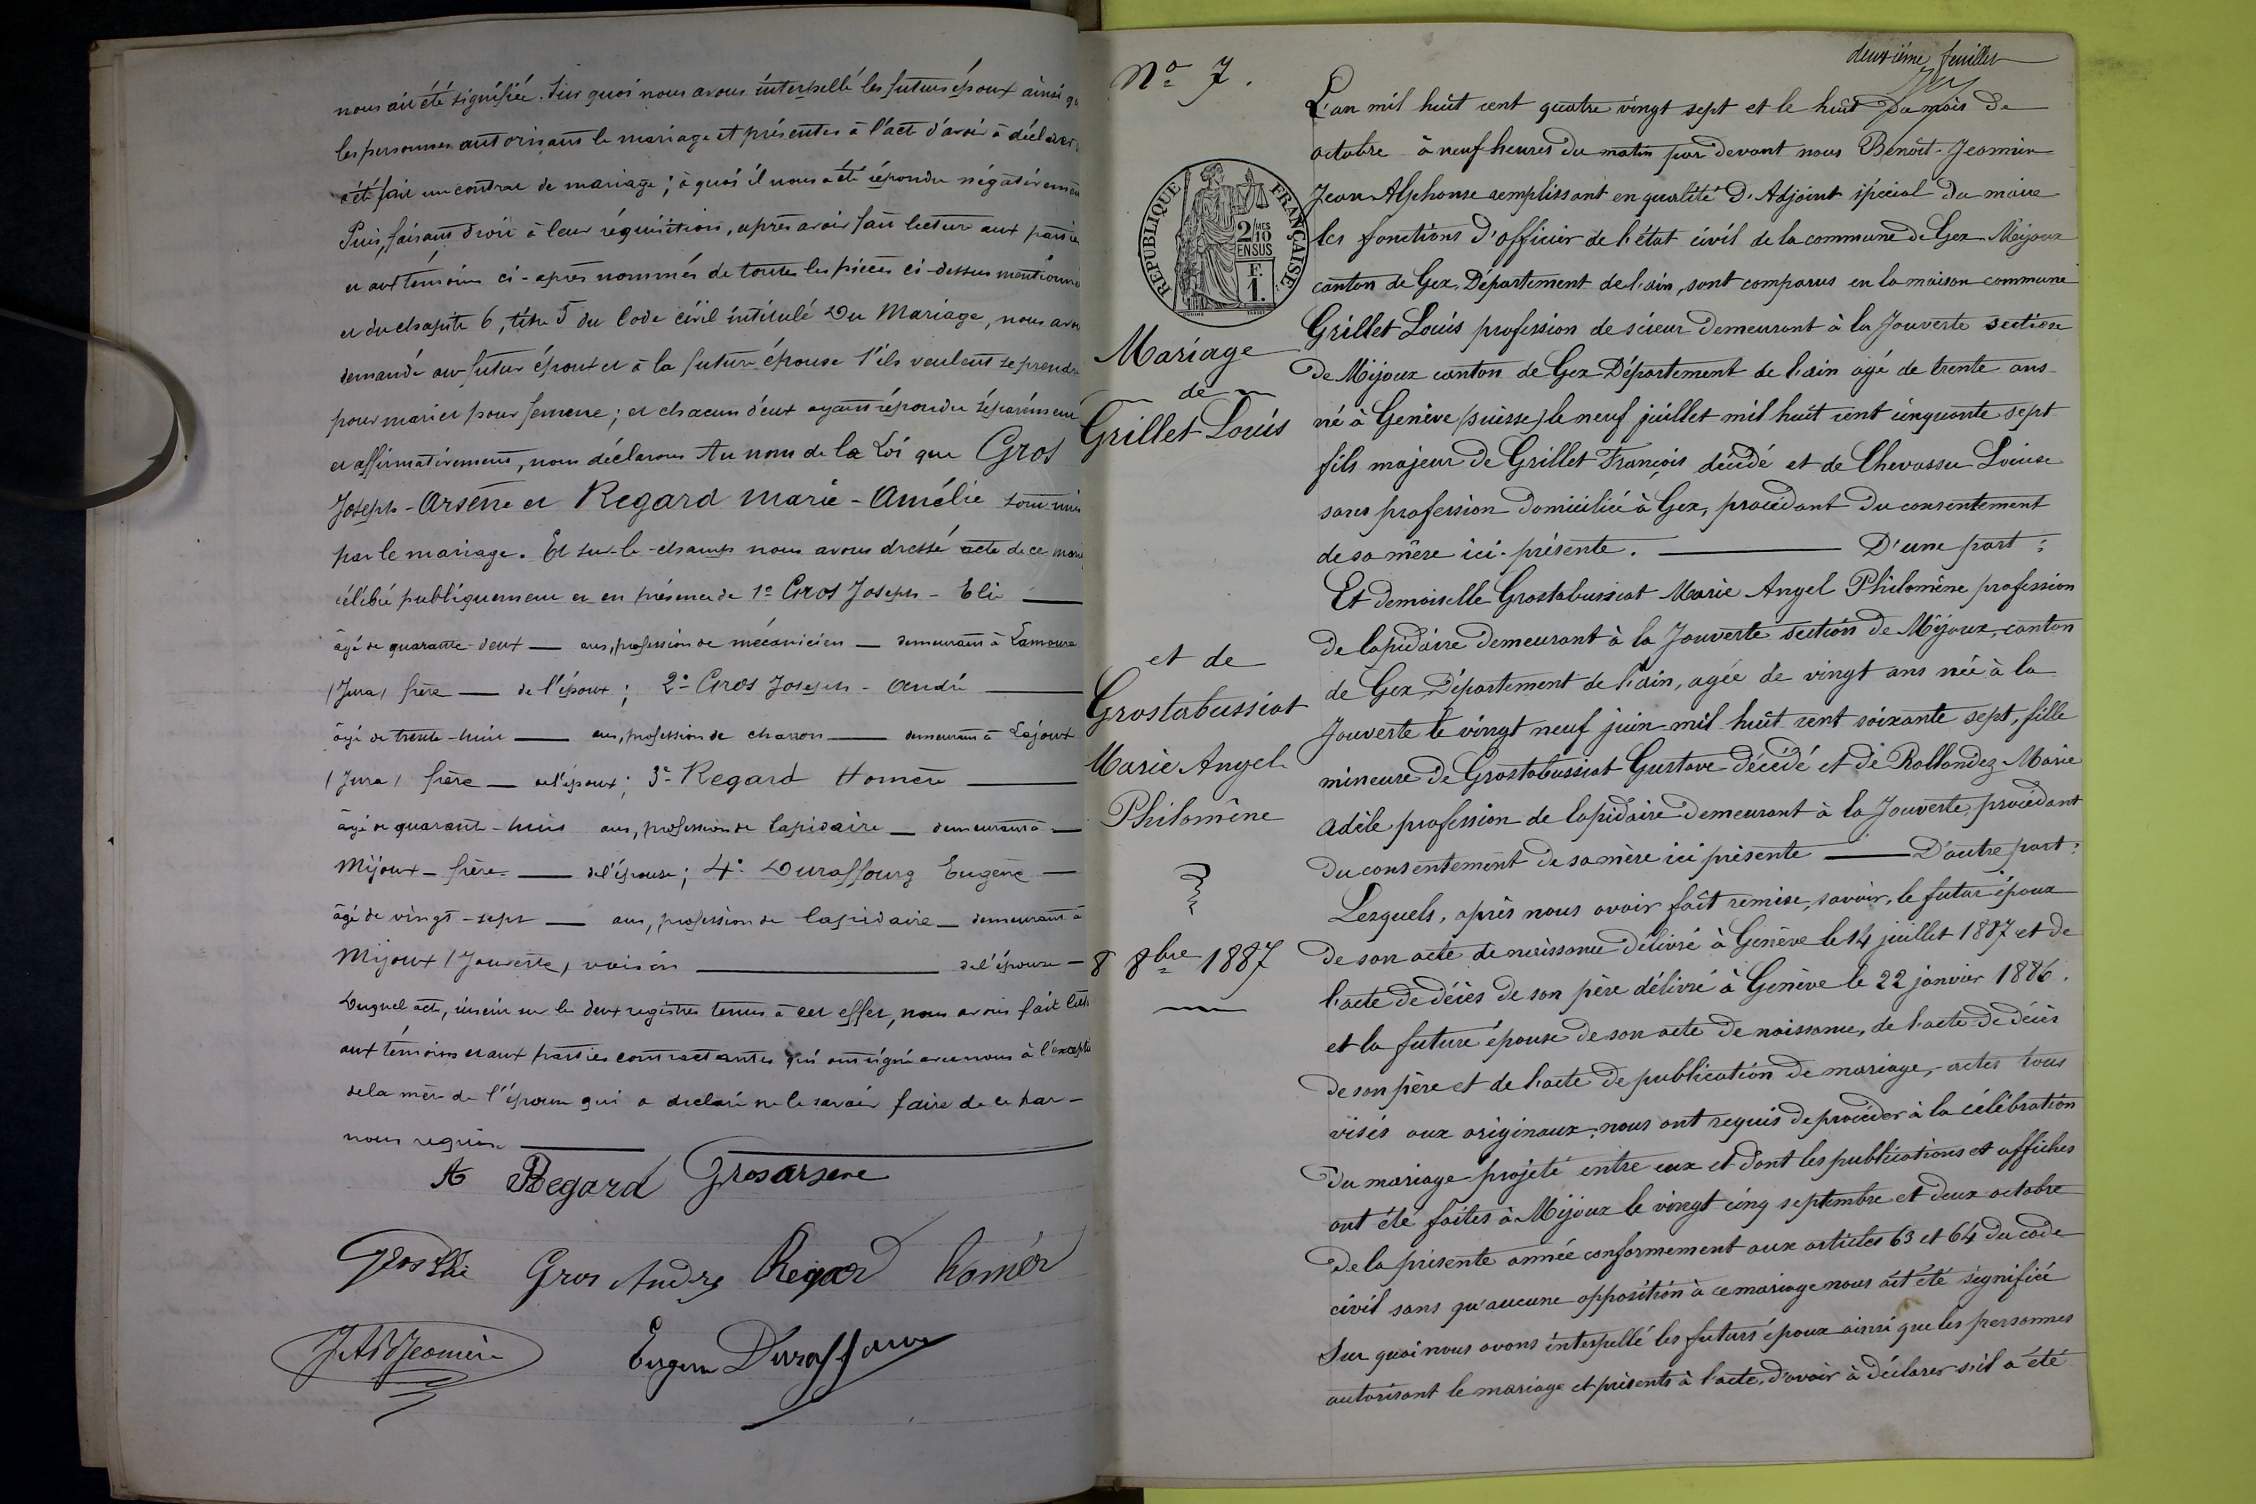 nous ait été signifiée. Sur quoi nous avons interpellé les futurs époux ainsi
les personnes autorisant le mariage et présentes à l'acte d'avoir à déclarer
a été fait un contrat de mariage ; à quoi il nous a été répondu négativement
Puis, faisant droit à leur réquisition, après avoir fait lecture aux parties
et aux témoins ci-après nommés de toutes les pièces ci-dessus mentionnées
et du chapitre 6, titre 5 du Code civil intitulé Du Mariage, nous avons
demandé au futur époux et à la future épouse s'ils veulent se prendre
pour mari et pour femme ; et chacun d'eux ayant répondu séparément
et affirmativement, nous déclarons Au nom de la Loi que Gros
Joseph-Arsène et Regard Marie-Amélie sont unis
par le mariage. Et sur-le-champ nous avons dressé acte de ce
célébré publiquement et en présence de 1º Gros Joseph-Elie
âgé de quarante-deux ans, profession de mécanicien demeurant à Lamoura
(Jura) frère de l'époux ; 2º Gros Joseph-André
âgé de trente-huit ans, profession de charron demeurant à Lajoux
(Jura) frère de l'époux ; 3º Regard Homère
âgé de quarante-huit ans, profession de lapidaire demeurant à
Mijoux frère de l'épouse ; 4º Duraffourg Eugène
âgé de vingt-sept ans, profession de lapidaire demeurant à
Mijoux (Jouverte) voisin de l'épouse
Duquel acte, inscrit sur les deux registres tenus à cet effet, nous avons fait
aux témoins et aux parties contractantes qui ont signé avec nous à l'exception
de la mère de l'épouse qui a déclaré ne le savoir faire de ce par-
nous requise
A Regard Gros arsene
Gros Elie Gros André Regard homér
J A B Jeomin
Eugene Duraffourg
deuxième feuillet
Nº 7.
REPUBLIQUE FRANÇAISE.
2 MES 10 EN SUS
F. 1.
Mariage
de
Grillet Louis
et de
Grostabussiat
Marie Angel
Philomène
8 8bre 1887
L'an mil huit cent quatre vingt sept et le huit du mois de
octobre à neuf heures du matin par devant nous Benoît-Jeomin
Jean Alphonse remplissant en qualité d'Adjoint spécial du maire
les fonctions d'officier de l'état civil de la commune de Gex-Mijoux
canton de Gex, Département de l'ain, sont comparus en la maison commune
Grillet Louis profession de scieur demeurant à la Jouverte section
de Mijoux canton de Gex Département de l'ain agé de trente ans
né à Genève (suisse) le neuf juillet mil huit cent cinquante sept
fils majeur de Grillet François, décédé et de Chevassu Louise
sans profession domiciliée à Gex, procédant du consentement
de sa mère ici-présente. D'une part ;
Et demoiselle Grostabussiat Marie Angel Philomène profession
de lapidaire demeurant à la Jouverte section de Mijoux, canton
de Gex, Département de l'ain, agée de vingt ans née à la
Jouverte le vingt neuf juin mil huit cent soixante sept, fille
mineure de Grostabussiat Gustave décédé et de Rollandez Marie
adèle profession de lapidaire demeurant à la Jouverte, procédant
du consentement de sa mère ici présente D'autre part :
Lesquels, après nous avoir fait remise, savoir, le futur époux
de son acte de naissance délivré à Genève le 14 juillet 1887 et de
l'acte de décès de son père délivré à Genève le 22 janvier 1886.
et la future épouse de son acte de naissance, de l'acte de décès
de son père et de l'acte de publication de mariage, actes tous
visés aux originaux, nous ont requis de procéder à la célébration
du mariage projeté entre eux et dont les publications et affiches
ont été faites à Mijoux le vingt cinq septembre et deux octobre
de la présente année conformement aux articles 63 et 64 du code
civil sans qu'aucune opposition à ce mariage nous ait été signifiée
Sur quoi nous avons interpellé les futurs époux ainsi que les personnes
autorisant le mariage et présents à l'acte, d'avoir à déclarer s'il a été